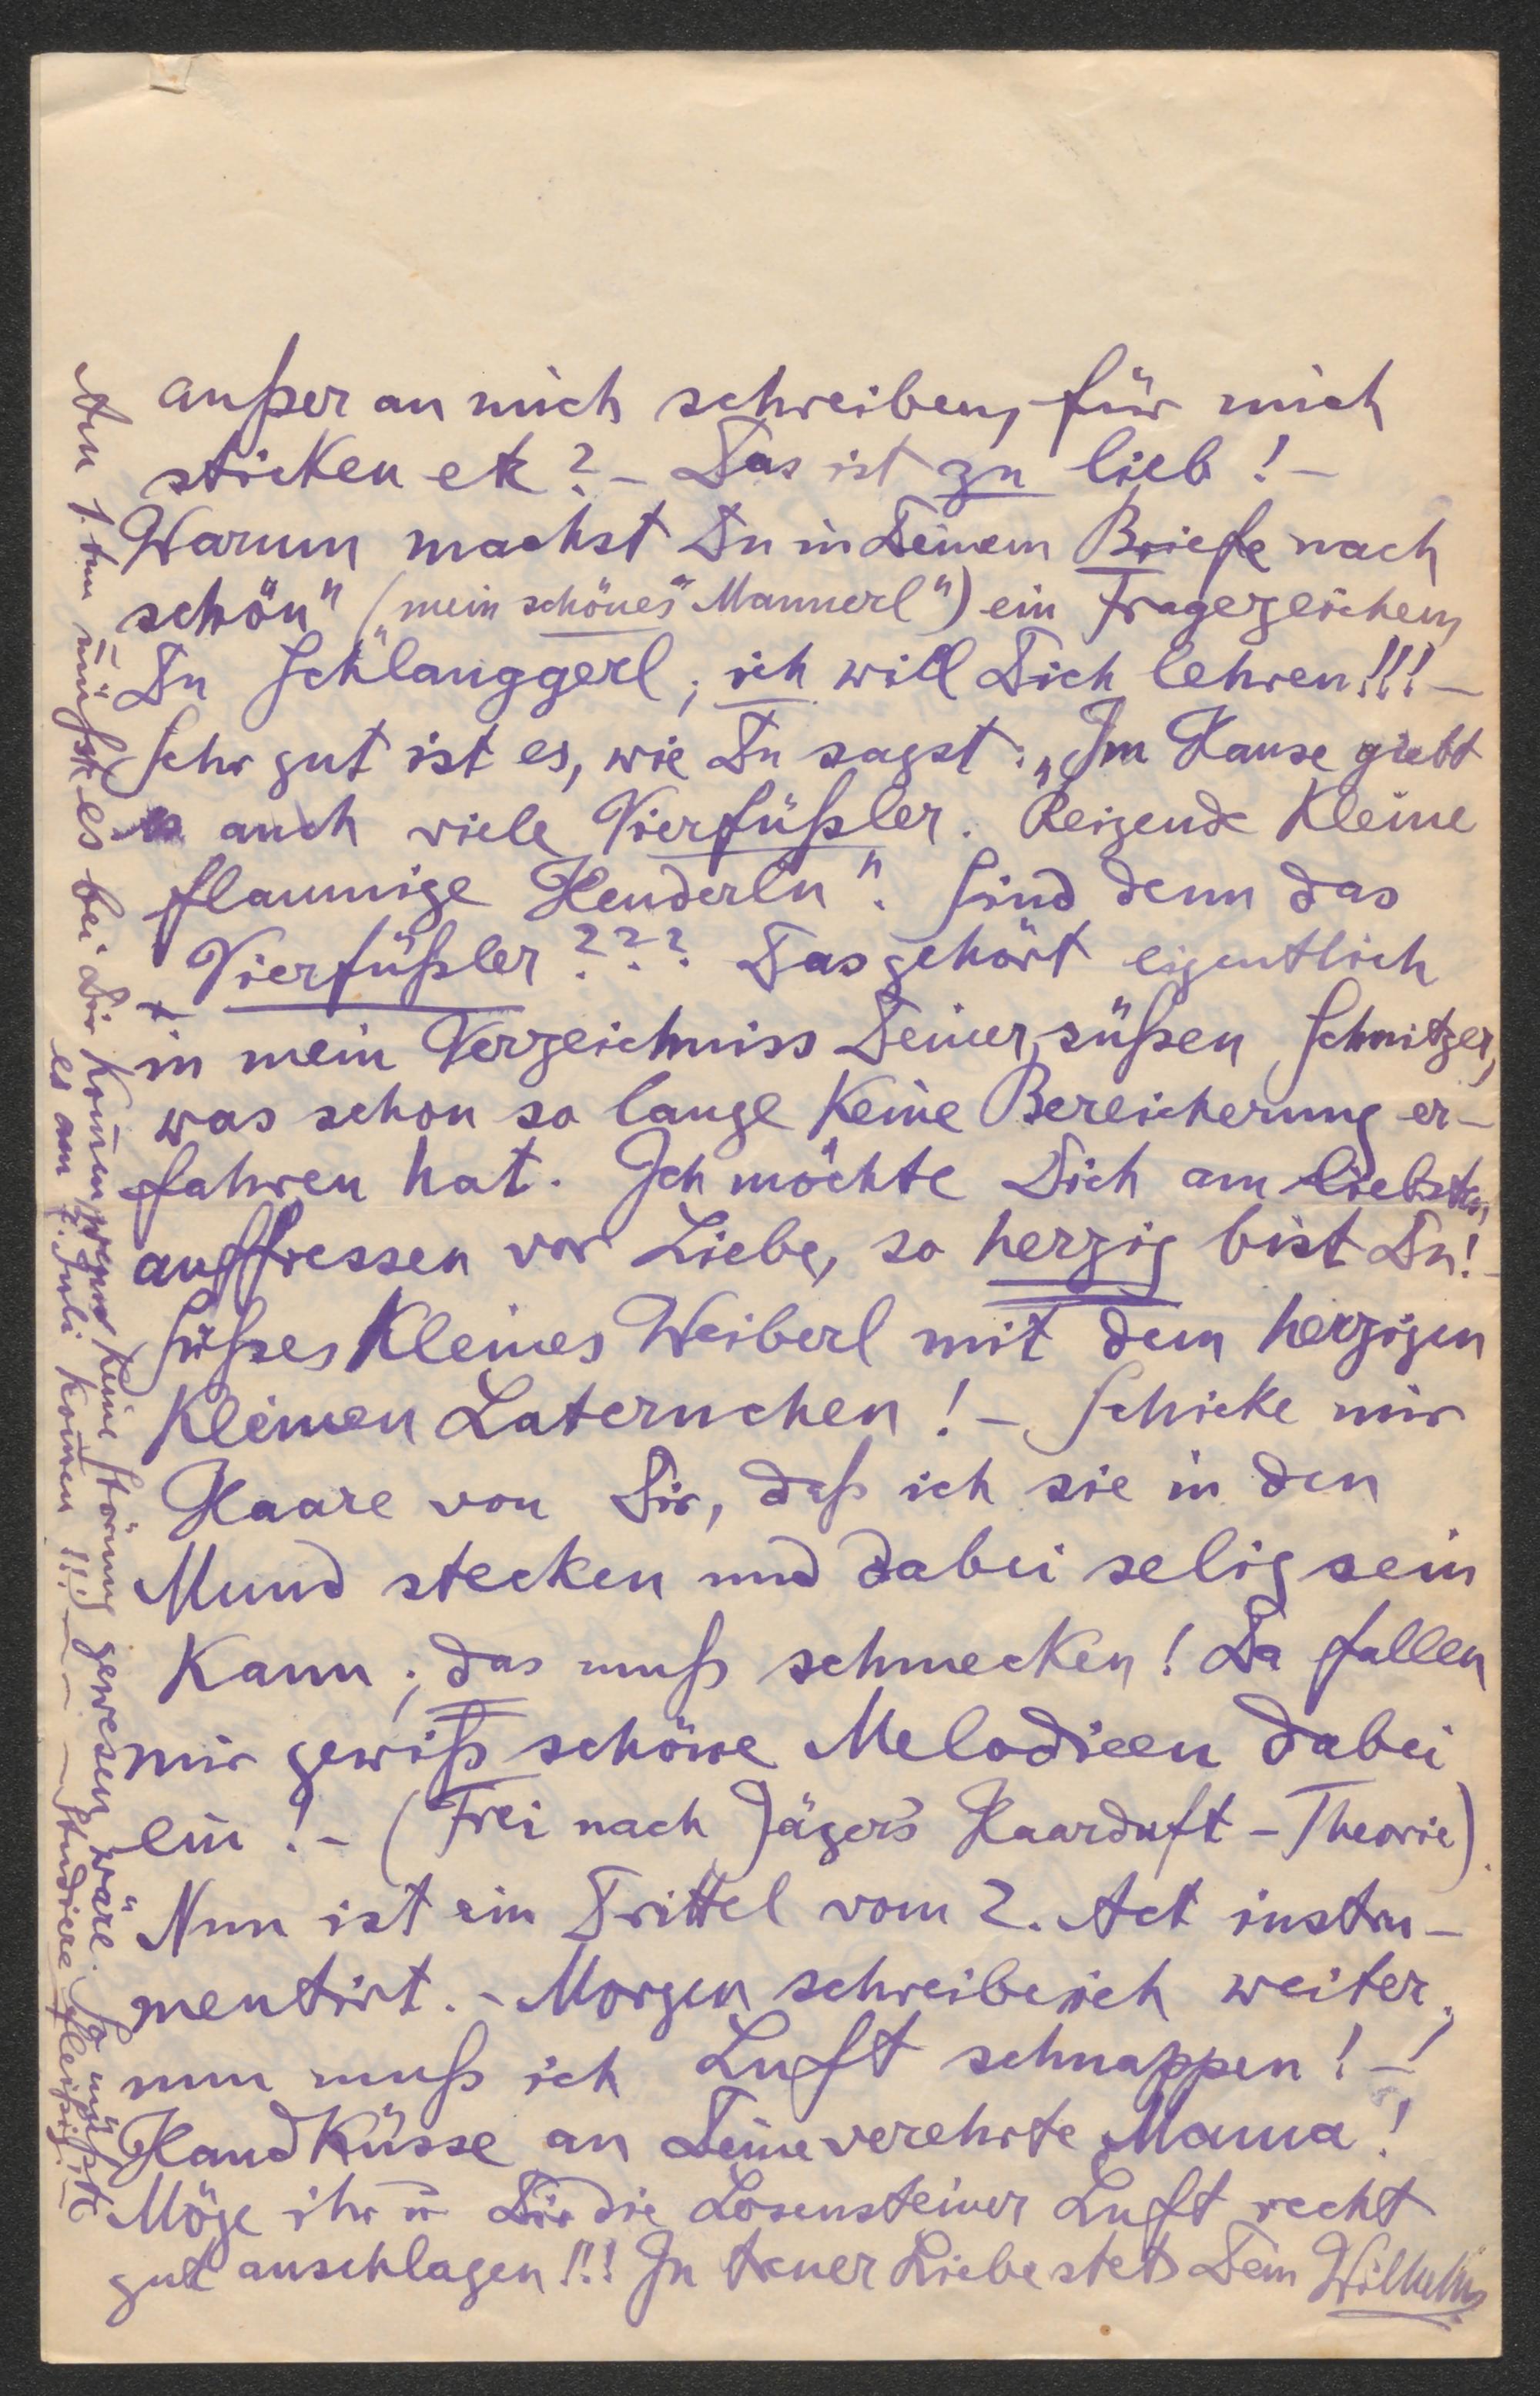 außer an mich schreiben, für mich
sticken etc? – Das ist zu lieb! –
Warum machst Du in Deinem Briefe nach
schön" („mein schönes" Mannerl") ein Fragezeichen,
Du Schlanggerl; ich will Dich lehren!!! –
Sehr gut ist es, wie Du sagst: „Im Hause giebt
es auch viele Vierfüßler. Reizende kleine
flaumige Henderln". Sind denn das
Vierfüßler??? Das gehört eigentlich
in mein Verzeichniss Deiner süßen Schnitzer,
was schon so lange keine Bereicherung er–
fahren hat. Ich möchte Dich am liebsten
auffressen vor Liebe, so herzig bist Du! –
Süßes kleines Weiberl mit dem herzigen
kleinen Laternchen! – Schicke mir
Haare von Dir, daß ich sie in den
Mund stecken und dabei selig sein
kann; das muß schmecken! Da fallen
mir gewiß schöne Melodieen dabei
ein! – (Frei nach Jäger's Haarduft – Theorie).
Nun ist ein Drittel vom 2. Act instru–
mentirt. – Morgen schreibe ich weiter,
nun muß ich Luft schnappen! – !
Handküsse an Deine verehrte Mama!
Möge ihr u Dir die Losensteiner Luft recht
gut anschlagen!!! In treuer Liebe stets Dein Wilhelm
es bei Dir kom̄en, wenn keine Störung gewesen wäre. So müßte
es am 7. Juli kom̄en!!! – – – – Studiere fleißig! –